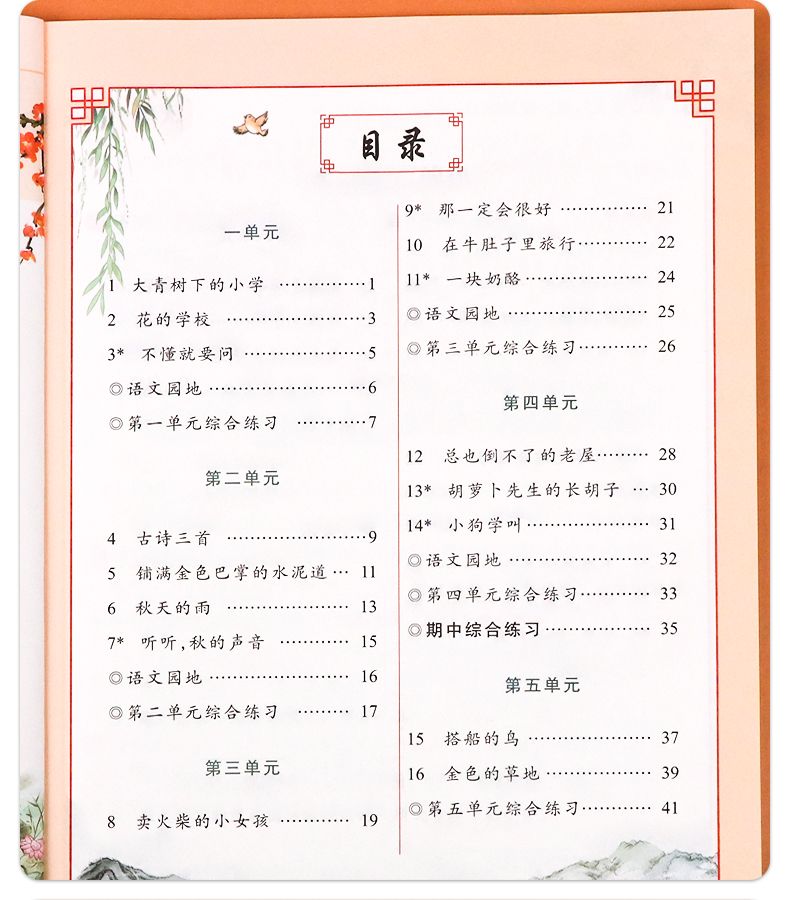 目录
一单元
1 大青树下的小学 ……………1
2 花的学校 ……………………3
3* 不懂就要问 …………………5
◎语文园地………………………6
◎第一单元综合练习 …………7
第二单元
4 古诗三首 ……………………9
5 铺满金色巴掌的水泥道… 11
6 秋天的雨 ………………… 13
7* 听听,秋的声音 ………… 15
◎语文园地…………………… 16
◎第二单元综合练习 ……… 17
第三单元
8 卖火柴的小女孩 ………… 19
9* 那一定会很好 …………… 21
10 在牛肚子里旅行………… 22
11* 一块奶酪………………… 24
◎语文园地 ………………… 25
◎第三单元综合练习………… 26
第四单元
12 总也倒不了的老屋……… 28
13* 胡萝卜先生的长胡子 … 30
14* 小狗学叫………………… 31
◎语文园地 ………………… 32
◎第四单元综合练习………… 33
◎期中综合练习……………… 35
第五单元
15 搭船的鸟 ………………… 37
16 金色的草地 ……………… 39
◎第五单元综合练习………… 41